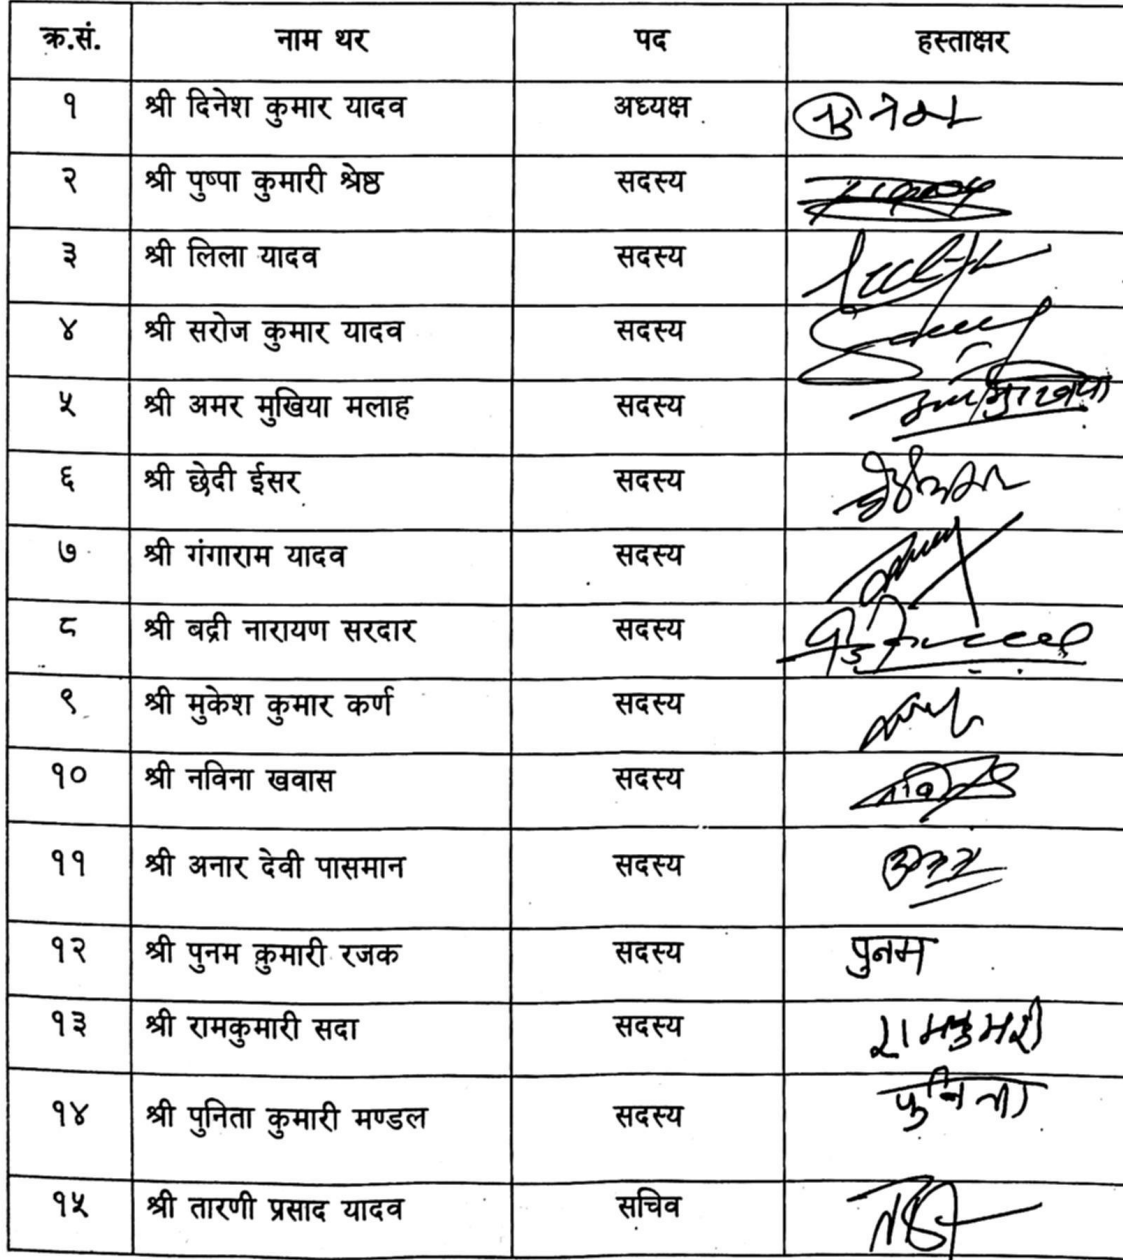 क्र.सं. नाम थर पद हस्ताक्षर
१ श्री दिनेश कुमार यादव अध्यक्ष
२ श्री पुष्पा कुमारी श्रेष्ठ सदस्य
३ श्री लिला यादव सदस्य
४ श्री सरोज कुमार यादव सदस्य
५ श्री अमर मुखिया मलाह सदस्य
६ श्री छेदी ईसर सदस्य
७ श्री गंगाराम यादव सदस्य
८ श्री बद्री नारायण सरदार सदस्य
९ श्री मुकेश कुमार कर्ण सदस्य
१० श्री नविना खवास सदस्य
११ श्री अनार देवी पासमान सदस्य
१२ श्री पुनम कुमारी रजक सदस्य पुनम
१३ श्री रामकुमारी सदा सदस्य रामकुमारी
१४ श्री पुनिता कुमारी मण्डल सदस्य पुनिता
१५ श्री तारणी प्रसाद यादव सचिव